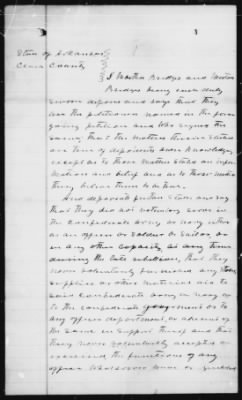 State of Arkansas
Clark County
I Martha Bridges and
Bridges being each duly
sworn deposes and says that they
are the petitioners named in the fore
going petition and who signed the
same, that the matters therein stated
are true of deponents own knowledge
except as to those matters stated on infor
mation and belief and as to those matters
they believe them to be true.
And deponents further states and say
that they did not serve in
the Confederate army or navy either
as an officer or soldier or sailor or
in any other capacity at any time
during the late rebellion, that they
never voluntarily furnished any stores
supplies or other material aid to
said Confederate army or navy or
to the confederate government or to
any officer department, or adherent of
the same in support thereof and that
they never voluntarily accepted or
exercised the functions of any
office whatsoever under or